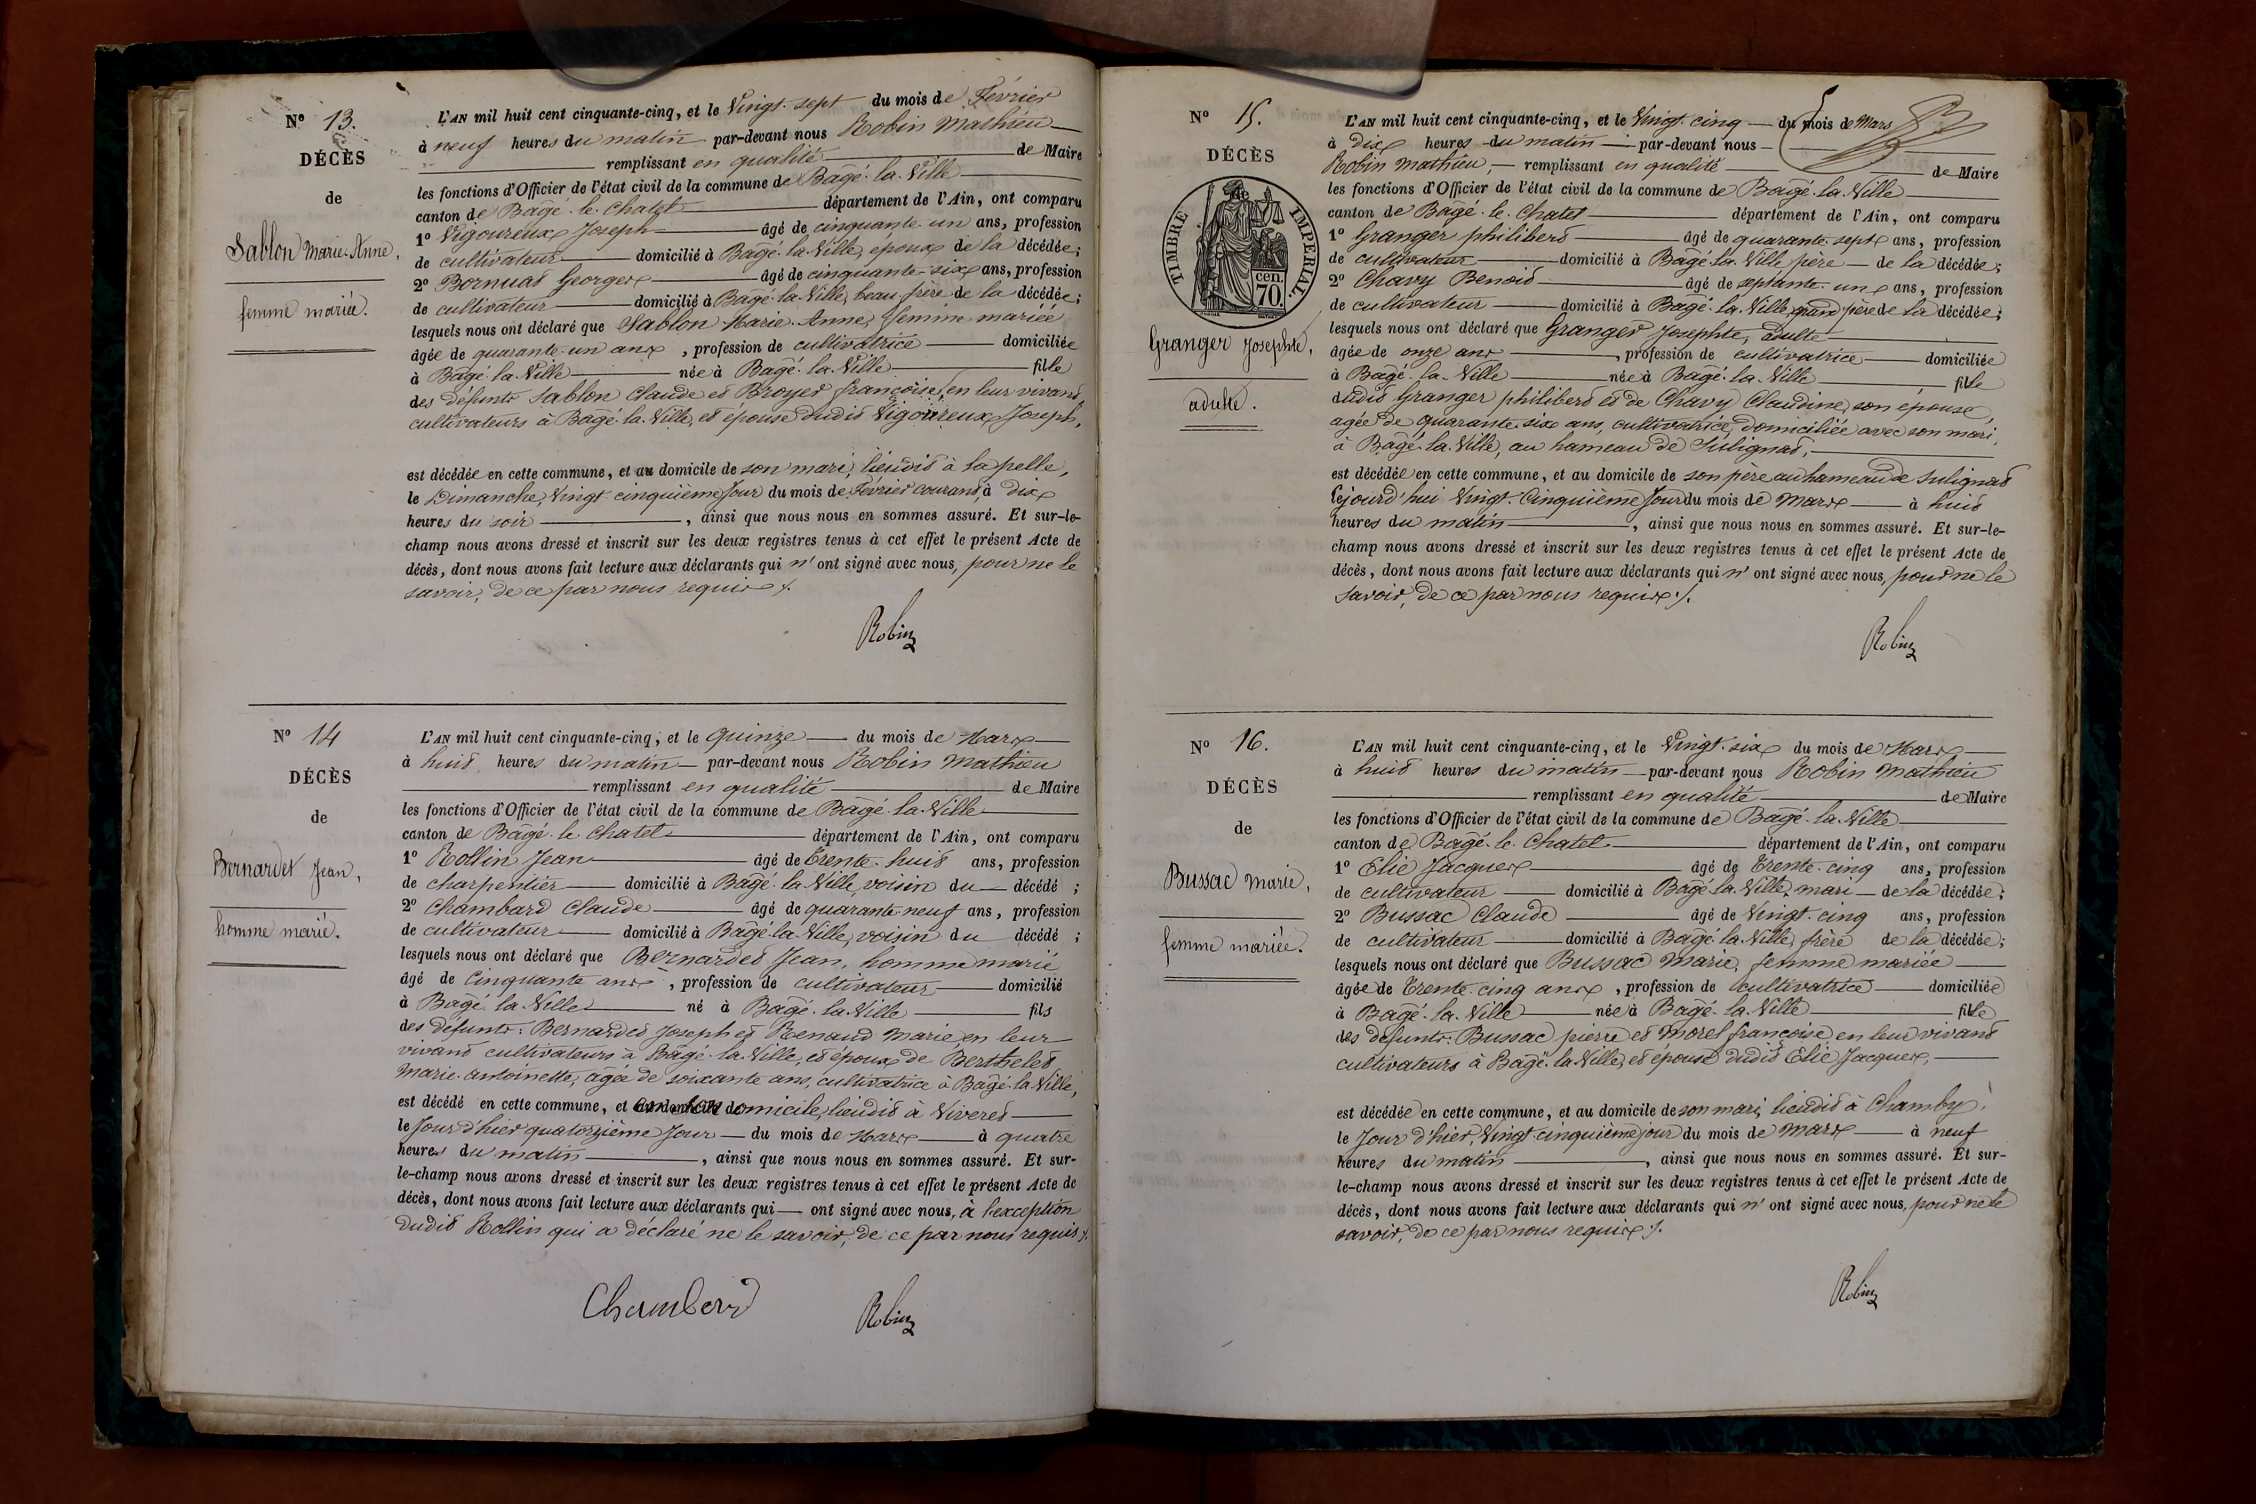 Nº 13.
DÉCÈS
de
Sablon Marie-Anne,
femme mariée.
L'AN mil huit cent cinquante-cinq, et le Vingt-sept du mois de Février
à neuf heures du matin par-devant nous Robin Mathieu
remplissant en qualité de Maire
les fonctions d'Officier de l'état civil de la commune de Bagé-la-Ville
canton de Bagé-le-Chatel département de l'Ain, ont comparu
1º Vigoureux Joseph âgé de cinquante-un ans, profession
de cultivateur domicilié à Bagé-la-Ville, époux de la décédée;
2º Bornuat Georges âgé de cinquante-six ans, profession
de cultivateur domicilié à Bagé-la-Ville, beau frère de la décédée;
lesquels nous ont déclaré que Sablon Marie-Anne, femme mariée
âgée de quarante-un ans, profession de cultivatrice domiciliée
à Bagé-la-Ville née à Bagé-la-Ville fille
des défunts Sablon Claude et Broyer françoise, en leur vivant
cultivateurs à Bagé-la-Ville, et épouse dudit Vigoureux Joseph,
est décédée en cette commune, et au domicile de son mari, lieudit à la pelle,
le Dimanche, Vingt-cinquième Jour du mois de Février courant, à dix
heures du soir, ainsi que nous nous en sommes assuré. Et sur-le-
champ nous avons dressé et inscrit sur les deux registres tenus à cet effet le présent Acte de
décès, dont nous avons fait lecture aux déclarants qui n'ont signé avec nous, pour ne le
savoir, de ce par nous requis ./.
Robin
Nº 14
DÉCÈS
de
Bernardet Jean,
homme marié.
L'AN mil huit cent cinquante-cinq, et le quinze du mois de Mars
à huit heures du matin par-devant nous Robin Mathieu
remplissant en qualité de Maire
les fonctions d'Officier de l'état civil de la commune de Bagé-la-Ville
canton de Bagé-le-Chatel département de l'Ain, ont comparu
1º Rollin Jean âgé de Trente-huit ans, profession
de charpentier domicilié à Bagé-la-Ville, voisin du décédé;
2º Chambard Claude âgé de quarante-neuf ans, profession
de cultivateur domicilié à Bagé-la-Ville, voisin du décédé;
lesquels nous ont déclaré que Bernardet Jean, homme marié
âgé de Cinquante ans, profession de cultivateur domicilié
à Bagé-la-Ville né à Bagé-la-Ville fils
des défunts: Bernardet Joseph et Renaud Marie en leur
vivant cultivateurs à Bagé-la-Ville, et époux de Berthelet
Marie-antoinette, agée de soixante ans, cultivatrice à Bagé-la-Ville,
est décédé en cette commune, et en son domicile, lieudit à Viveret
le Jour d'hier quatorzième Jour du mois de Mars à quatre
heures du matin, ainsi que nous nous en sommes assuré. Et sur-
le-champ nous avons dressé et inscrit sur les deux registres tenus à cet effet le présent Acte de
décès, dont nous avons fait lecture aux déclarants qui ont signé avec nous, à l'exception
dudit Rollin qui a déclaré ne le savoir, de ce par nous requis ./.
Chambard Robin
Nº 15.
DÉCÈS
TIMBRE IMPERIAL.
cen. 70.
Granger Josephte,
adulte.
L'AN mil huit cent cinquante-cinq, et le Vingt-cinq du mois de Mars
à dix heures du matin par-devant nous
Robin Mathieu, remplissant en qualité de Maire
les fonctions d'Officier de l'état civil de la commune de Bagé-la-Ville
canton de Bagé-le-Chatel département de l'Ain, ont comparu
1º Granger philibert âgé de quarante-sept ans, profession
de cultivateur domicilié à Bagé-la-Ville père de la décédée;
2º Chavy Benoit âgé de septante-un ans, profession
de cultivateur domicilié à Bagé-la-Ville, grand père de la décédée;
lesquels nous ont déclaré que Granger Josephte, adulte
âgée de onze ans, profession de cultivatrice domiciliée
à Bagé-la-Ville née à Bagé-la-Ville fille
dudit Granger philibert et de Chavy Claudine, son épouse,
agée de quarante-six ans, cultivatrice, domiciliée avec son mari,
à Bagé-la-Ville, au hameau de Sulignat,
est décédée en cette commune, et au domicile de son père au hameau de Sulignat
Cejourd'hui Vingt-Cinquième Jour du mois de Mars à huit
heures du matin, ainsi que nous nous en sommes assuré. Et sur-le-
champ nous avons dressé et inscrit sur les deux registres tenus à cet effet le présent Acte de
décès, dont nous avons fait lecture aux déclarants qui n'ont signé avec nous, pour ne le
savoir, de ce par nous requis ./.
Robin
Nº 16.
DÉCÈS
de
Bussac Marie,
femme mariée.
L'AN mil huit cent cinquante-cinq, et le Vingt-six du mois de Mars
à huit heures du matin par-devant nous Robin Mathieu
remplissant en qualité de Maire
les fonctions d'Officier de l'état civil de la commune de Bagé-la-Ville
canton de Bagé-le-Chatel département de l'Ain, ont comparu
1º Elie Jacques âgé de Trente-cinq ans, profession
de cultivateur domicilié à Bagé-la-Ville, mari de la décédée;
2º Bussac Claude âgé de Vingt-cinq ans, profession
de cultivateur domicilié à Bagé-la-Ville, frère de la décédée;
lesquels nous ont déclaré que Bussac Marie, femme mariée
âgée de Trente-cinq ans, profession de cultivatrice domiciliée
à Bagé-la-Ville née à Bagé-la-Ville fille
des défunts: Bussac pierre et Morel françoise en leur vivant
cultivateurs à Bagé-la-Ville, et épouse dudit Elie Jacques,
est décédée en cette commune, et au domicile de son mari, lieudit à Chamby,
le Jour d'hier, Vingt-cinquième jour du mois de Mars à neuf
heures du matin, ainsi que nous nous en sommes assuré. Et sur-
le-champ nous avons dressé et inscrit sur les deux registres tenus à cet effet le présent Acte de
décès, dont nous avons fait lecture aux déclarants qui n'ont signé avec nous, pour ne le
savoir, de ce par nous requis ./.
Robin